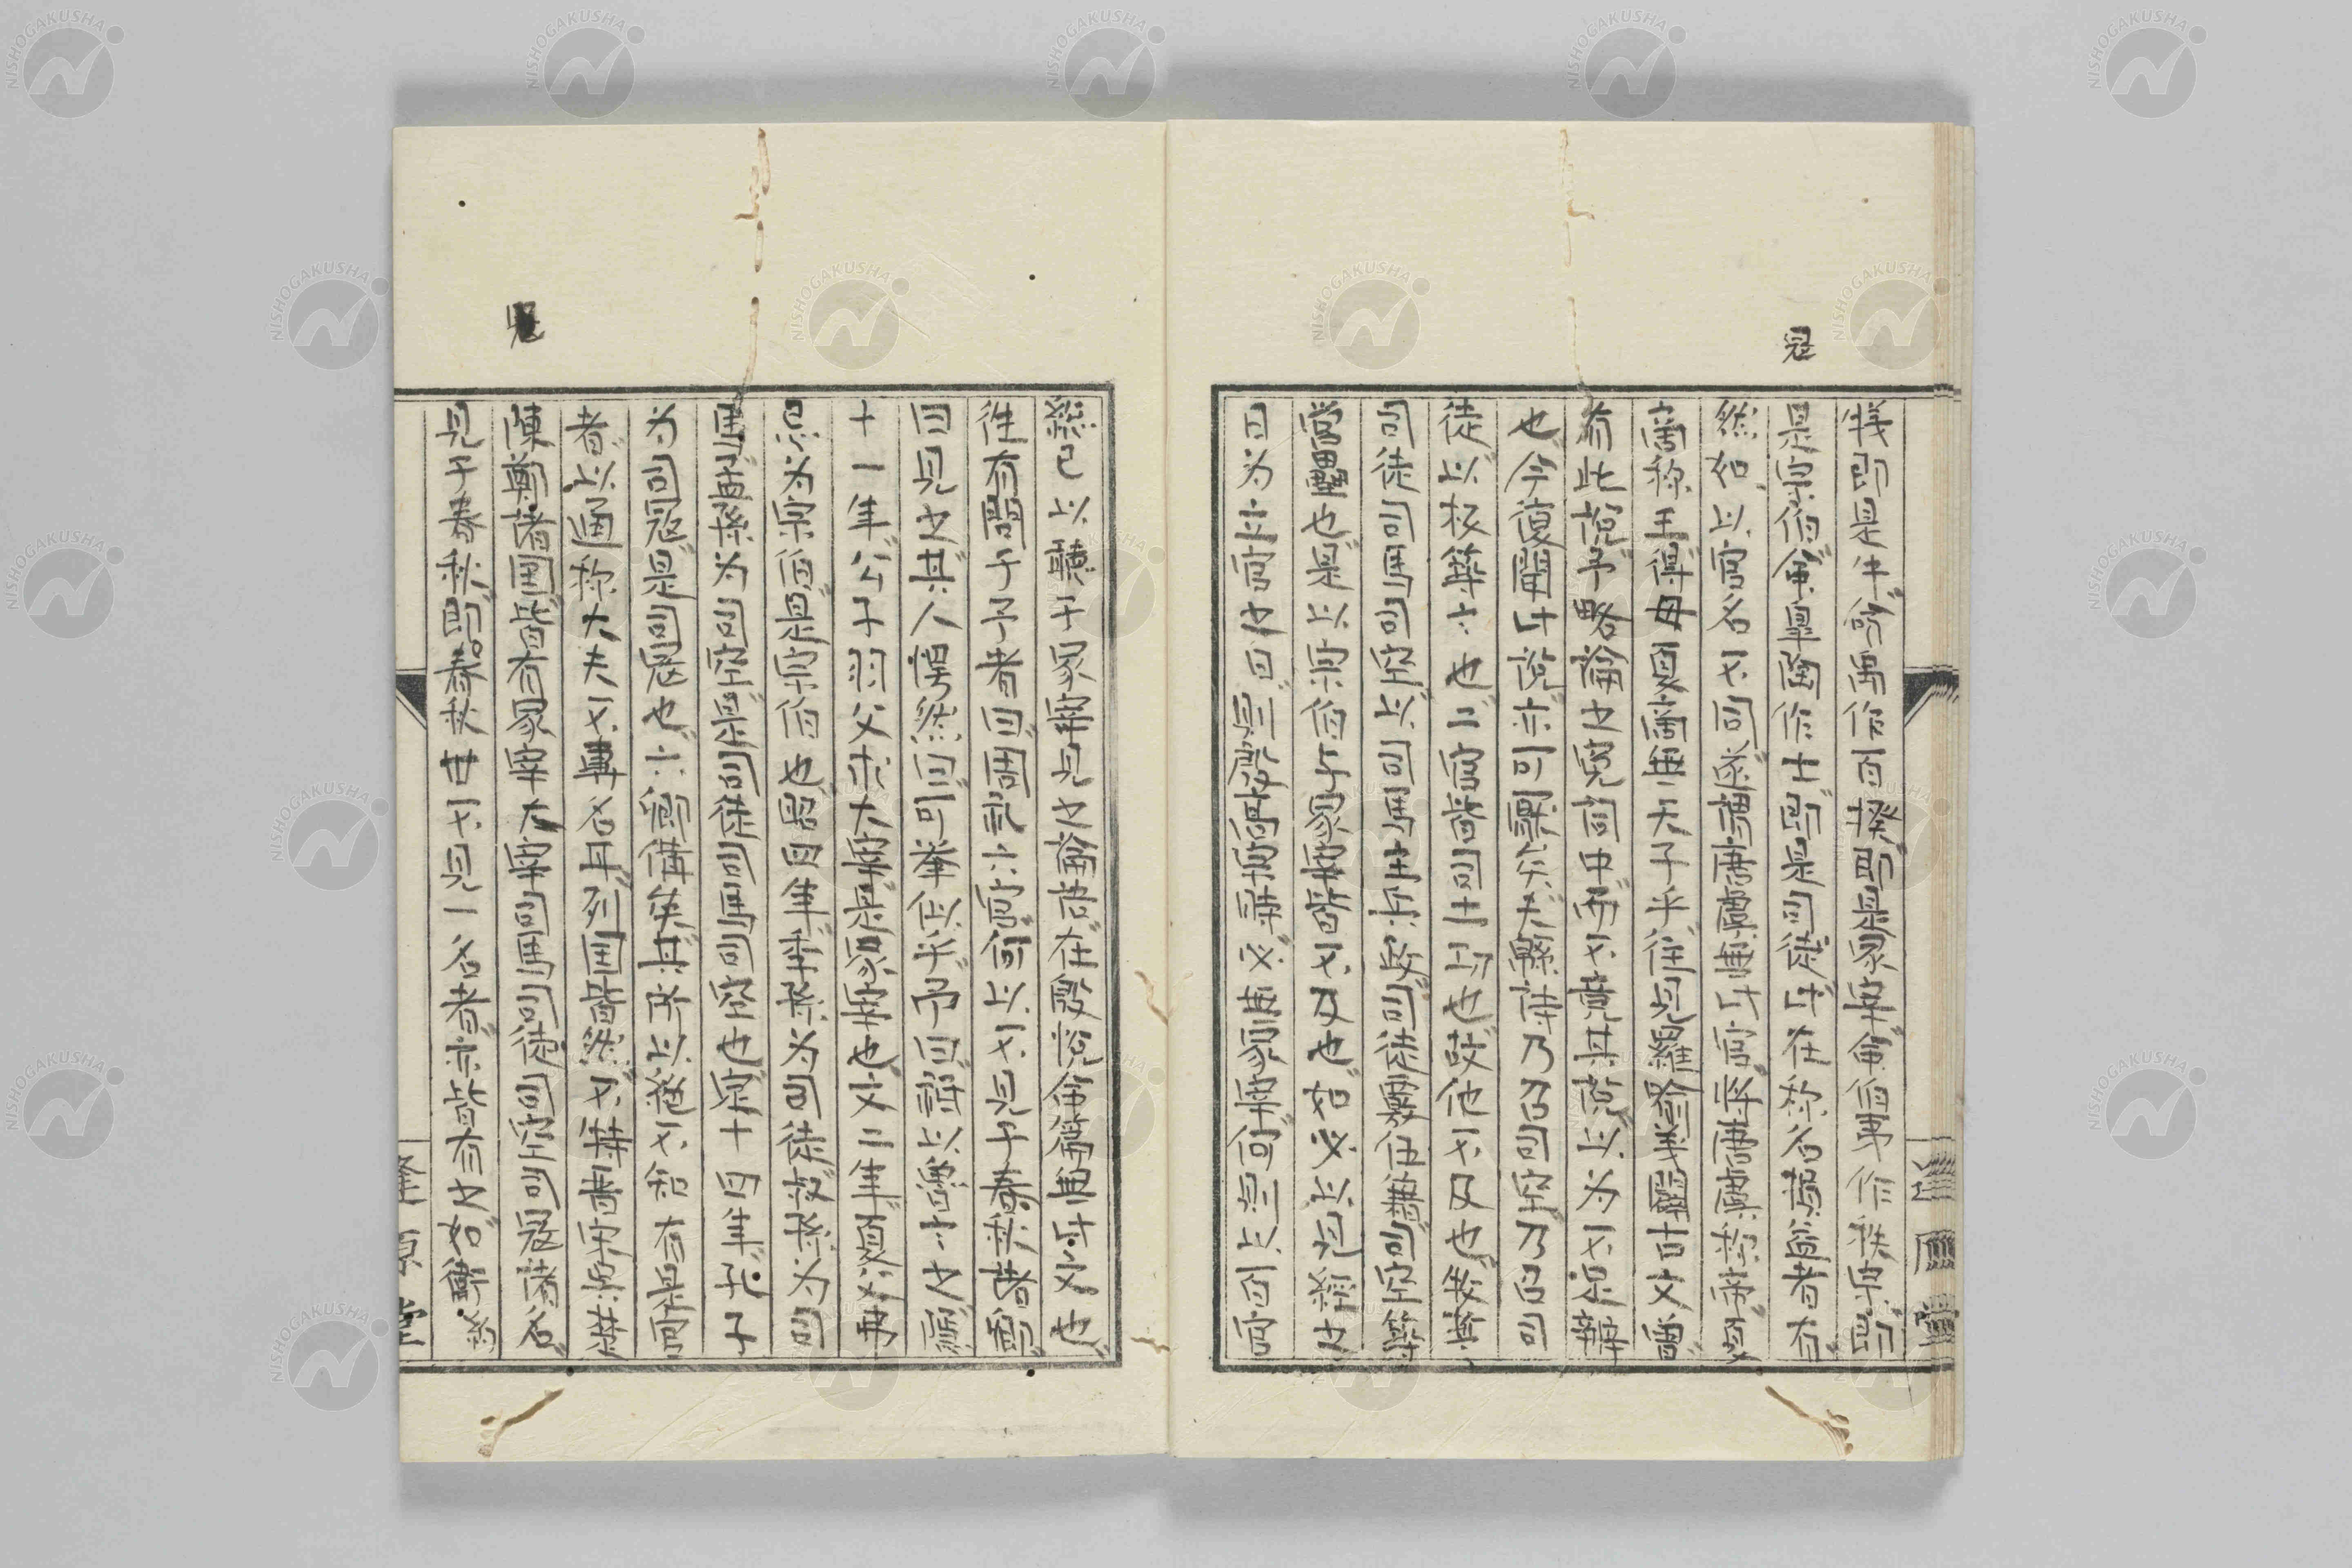 即是牛命禹作百揆即是冢宰命伯夷作秩宗即
是宗伯命皐陶作士即是司徒牛在称名損益者有
然如以官名不同遂謂唐虞無此官將唐虞称帝夏
商称王得毋夏商無二天子乎往見羅喻義闢古文嘗
有此説予略論之寃詞中而不竟其説以为不足辨
也今復闢此説亦可異矣夫緜詩乃召司空乃召司
徒以核築六也二官皆司土功也故他不及也後其
司徒司馬司空以司馬主兵司徒司空築
當壘也是以宗伯与冢宰皆不及也如必以見經文
曰为此官則殷無冢宰何則以百官
冦
緫己以聽于冢宰見之論語在殷説命篇無此文也
徃有闢于予者曰周礼六官何以不見于春秋諸國
曰見之其人愕然曰可举似乎予曰請以魯六之隱
十一年公子羽父求太宰是冢宰也文二年夏父弗
忌为宗伯是宗伯也昭四年季孫为司徒叔孫为司
馬孟孫为司空是司徒司馬司空也定十四年孔子
为司冦是司冦也六卿備矣其所以猶不知有是官
者以通称大夫不專名耳列国皆然不讀書宋
陳鄭諸国皆有冢宰太宰司馬司徒司空司冦諸名
見于春秋即春秋廿不見一名者亦皆有之如
逢原堂